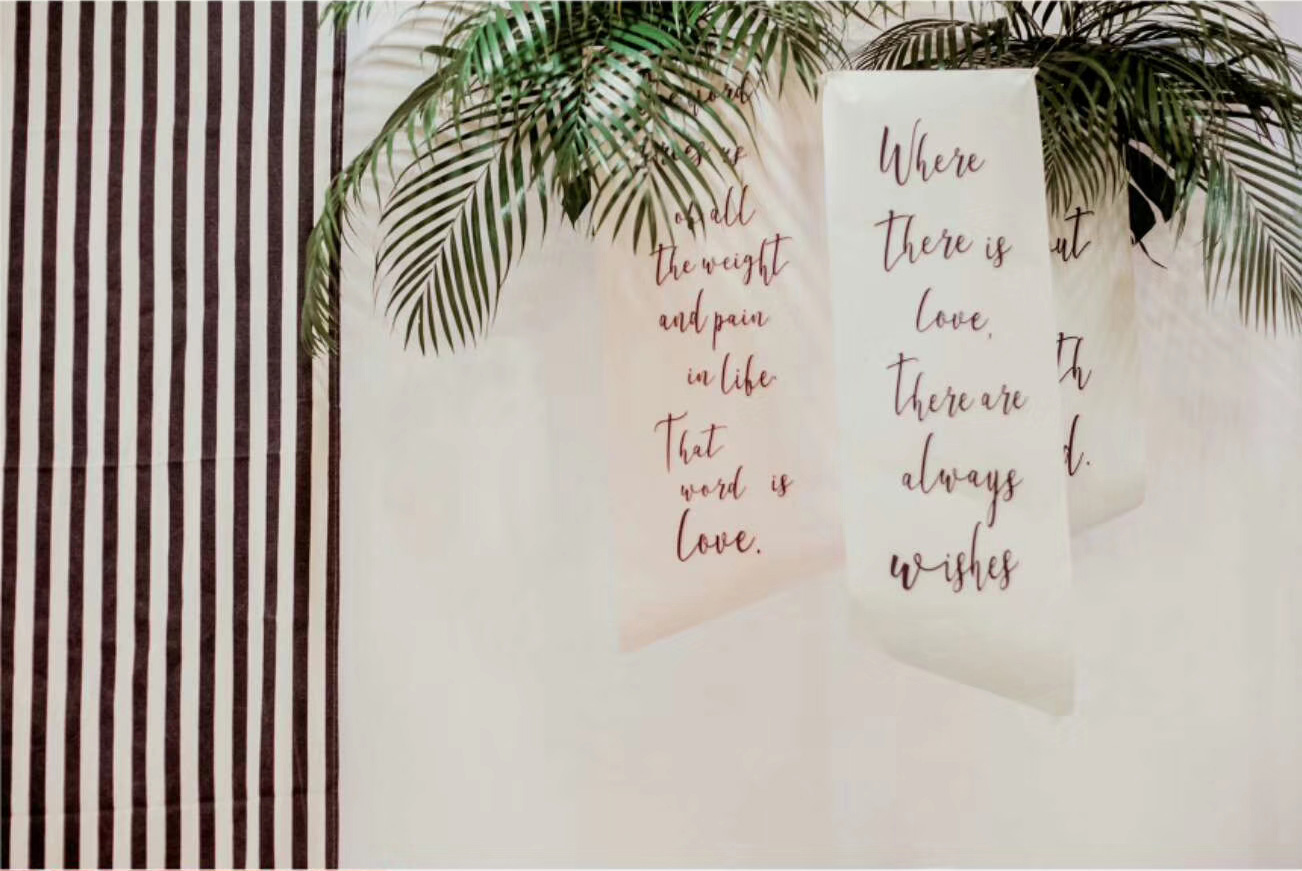 word
us
of all
the weight
and pain
in life.
That
word is
love.
Where
there is
love,
there are
always
wishes
ut
th
d.